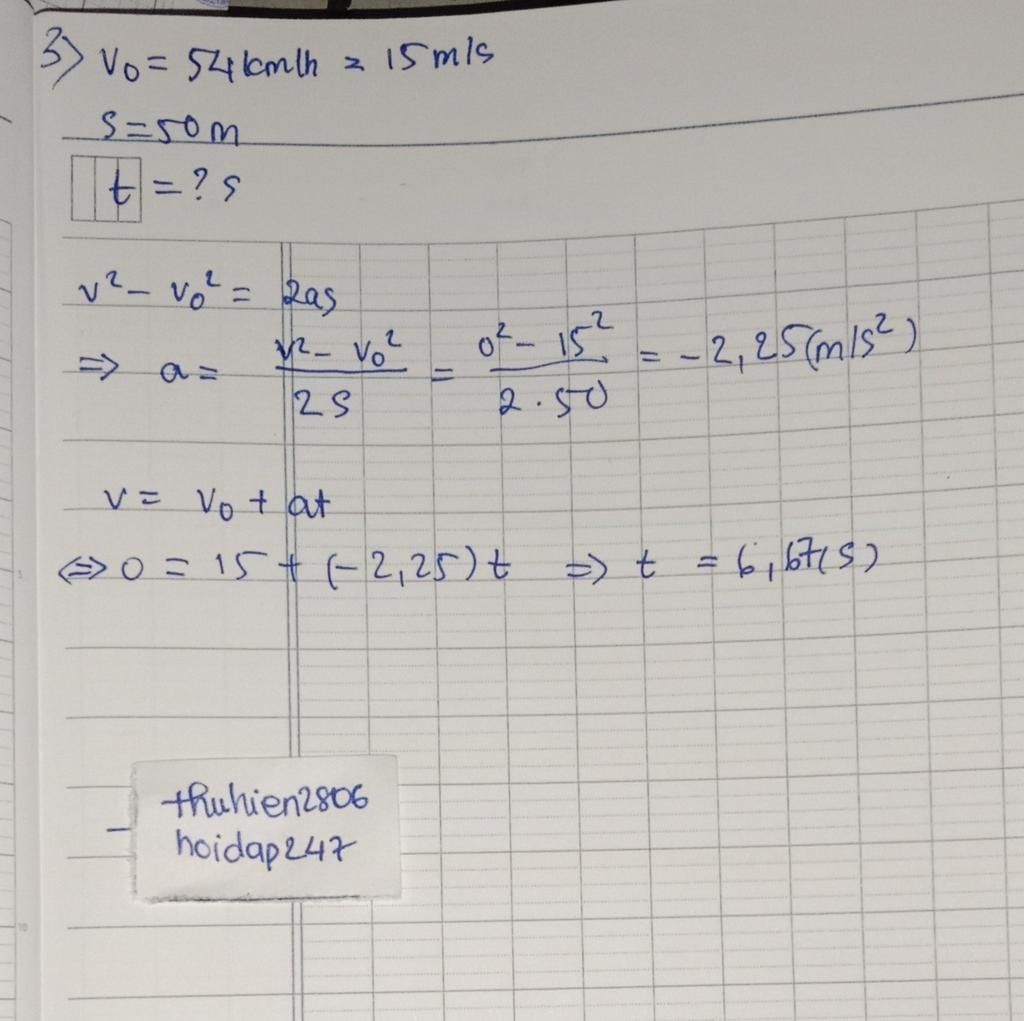 3) v₀ = 54km/h = 15m/s
s = 50m
t = ? s
v² - v₀² = 2as
⇒ a = (v² - v₀²)/(2s) = (0² - 15²)/(2.50) = -2,25(m/s²)
v = v₀ + at
⇔ 0 = 15 + (-2,25)t ⇒ t = 6,67(s)
thuhien2806
hoidap247